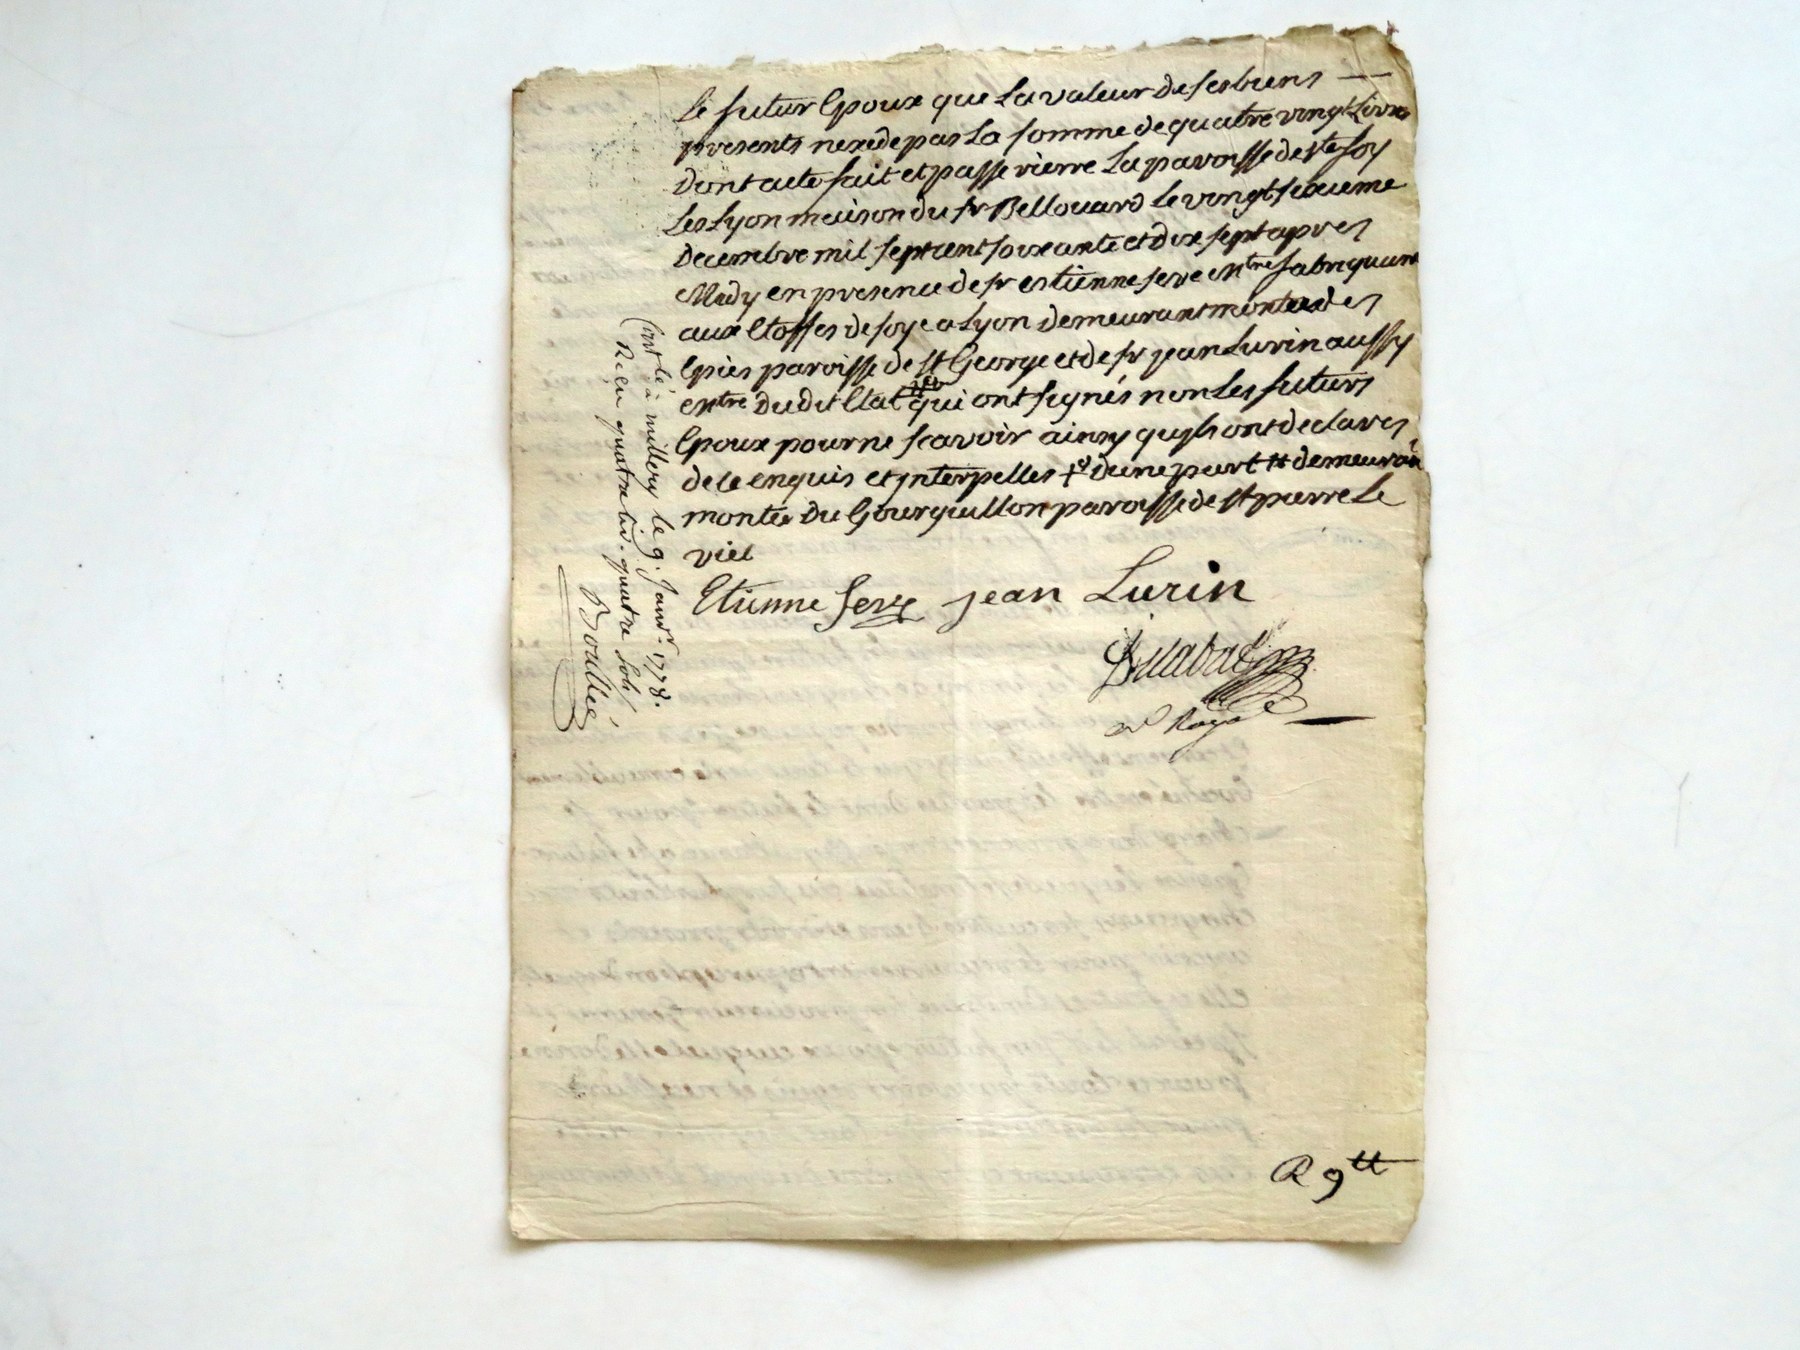 le futur Epoux que La valeur de ses biens
presents nexede pas La somme de quatre vingt Livres
Dont acte fait et passé rierre La paroisse de Ste foy
Les Lyon maison du sr Bellouard Le vingt sixieme
Decembre mil sept cent soixante et dix sept apres
Midy en presence de sr estienne seve mtre fabriquant
aux Etoffes de soye a Lyon demeurant montée des
Epies paroisse de st George et de sr jean Lurin aussy
mtre du dit Etat # qui ont signés non Les futurs
Epoux pour ne scavoir ainsy quils ont declarés
de ce enquis et interpelles + dune part # demeurant
montée Du Gourguillon paroisse de st pierre Le
viel
Etienne Seve jean Lurin
nre Royal
R 9tt
Contlé à millery le 9. Janvr. 1778.
Reçu quatre liv. quatre sols
Boullée